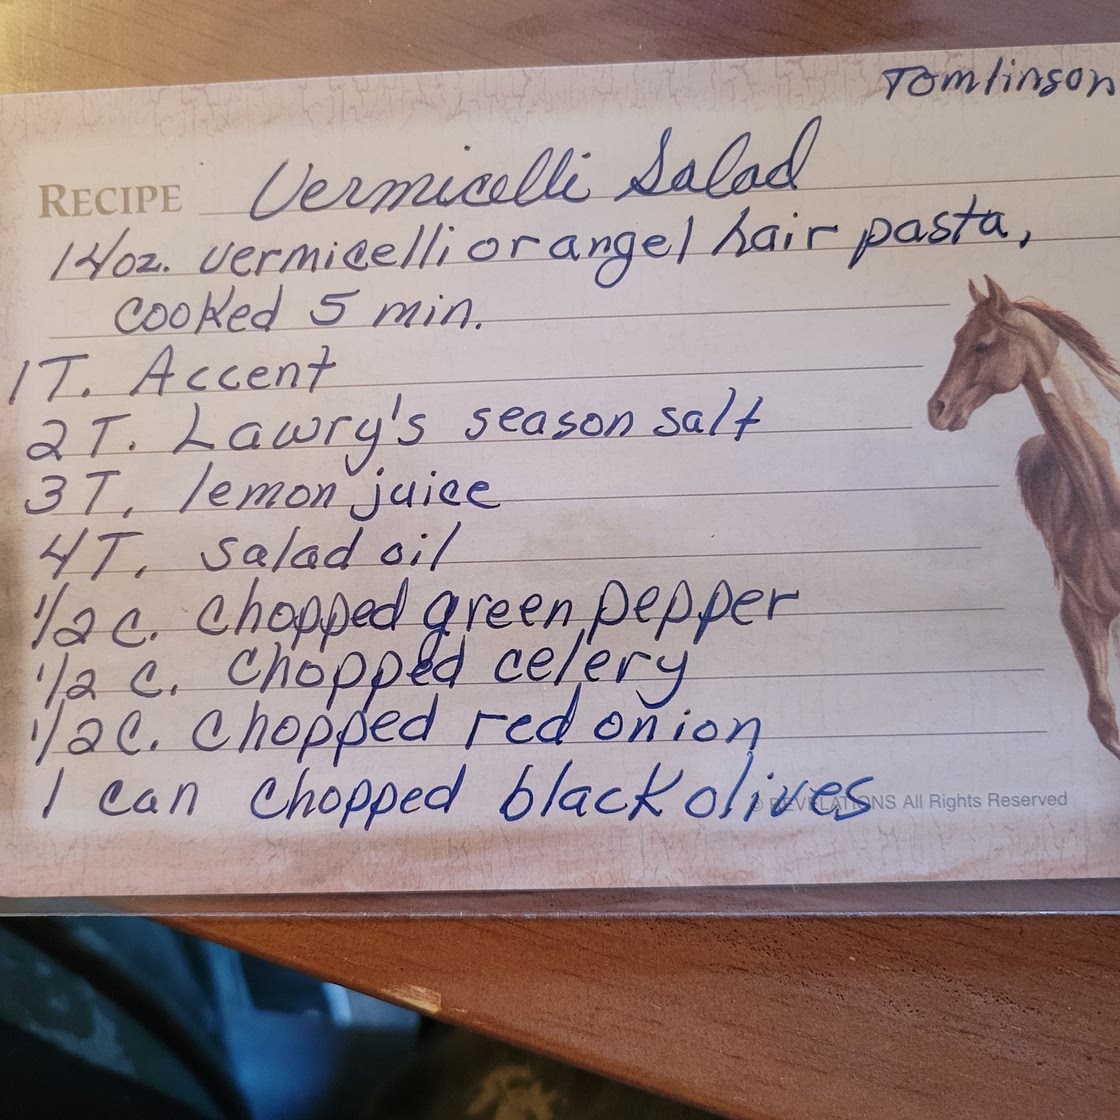 Tomlinson
RECIPE Vermicelli Salad
14oz. vermicelli or angel hair pasta,
cooked 5 min.
1T. Accent
2T. Lawry's season salt
3T. lemon juice
4T. salad oil
1/2 c. chopped green pepper
1/2 c. chopped celery
1/2 c. chopped red onion
1 can chopped black olives
© REVELATIONS All Rights Reserved